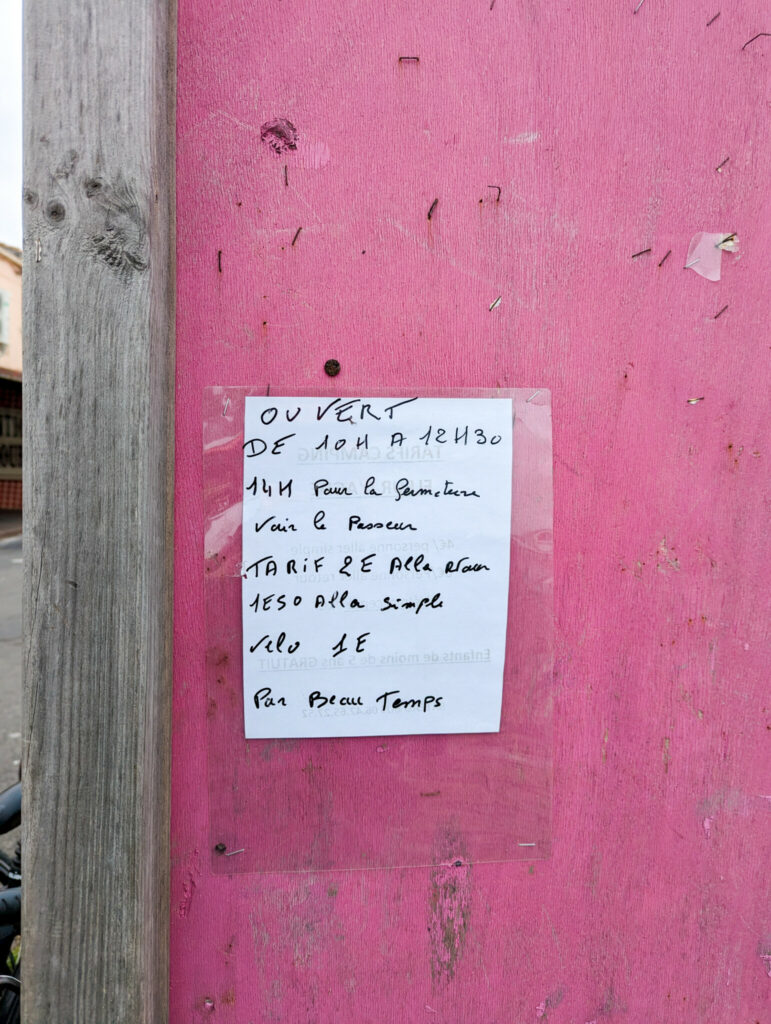 OUVERT
DE 10H A 12H30
14H Pour la fermeture
Voir le Passeur
TARIF 2E Alle retour
1E50 Alle simple
Velo 1E
Par Beau Temps
TARIFS CAMPING
4€/ personne aller simple
Enfants de moins de 5 ans GRATUIT